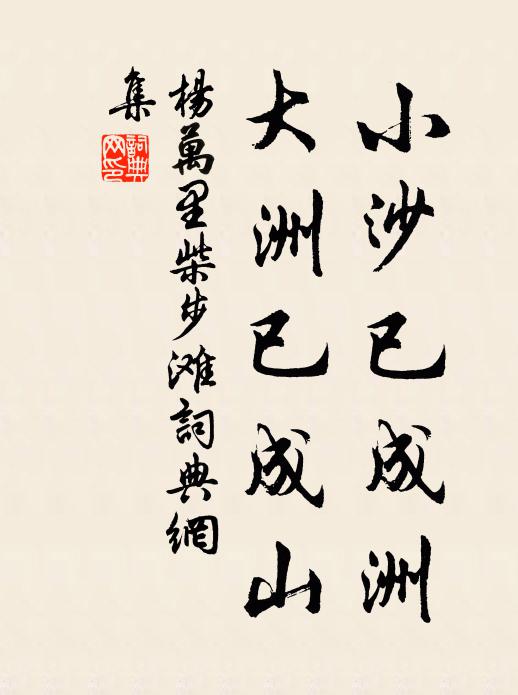 小沙已成洲
大洲已成山
楊萬里柴步滩詞典網
集
詞典
网印